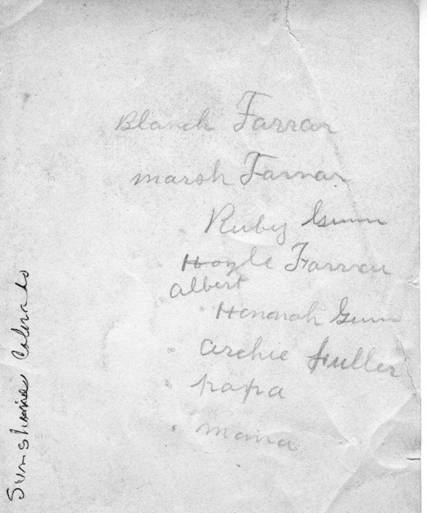 Blanch Farrar
Marsh Farrar
Ruby Gunn
Hoyle Farrar
Albert
Hannah Gunn
Archie Fuller
papa
mama
Sunshine Colorado